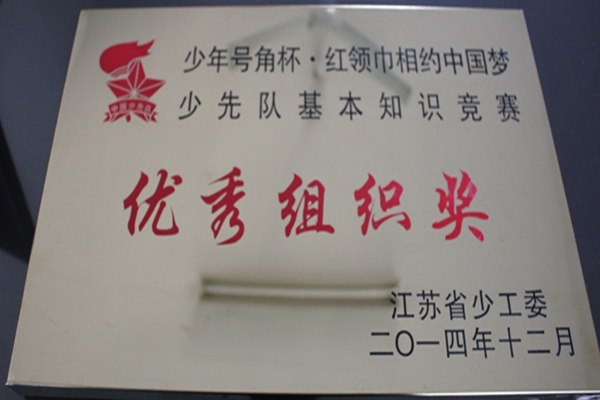 少年号角杯·红领巾相约中国梦
少先队基本知识竞赛
中国少先队
优秀组织奖
江苏省少工委
二〇一四年十二月